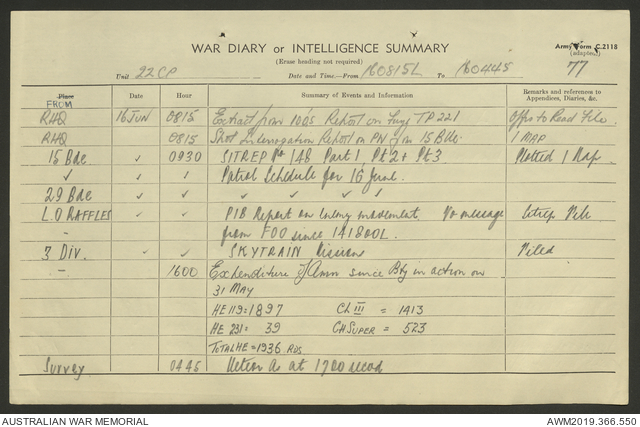 WAR DIARY or INTELLIGENCE SUMMARY
Army Form C.2118
(Erase heading not required)
(adapted)
77
Unit 22CP Date and Time—From 160815L To 160445
Place Date Hour Summary of Events and Information Remarks and references to Appendices, Diaries, &c.
FROM
RHQ 16 JUN 0815 Extract from IO's Report on TP 221 Offrs to Read File.
RHQ 0815 Short Interrogation Report on PW from 15 Bde 1 MAP
15 Bde ✓ 0930 SITREP No 148 Part 1 Pt 2 + Pt 3 Noted 1 Map
✓ ✓ Patrol Schedule for 16 June.
29 Bde ✓ ✓ ✓ ✓ ✓
L.O RAFFLES ✓ ✓ PIB Report on Enemy movement. No message Sitrep File
from FOO since 141800L.
3 Div. ✓ ✓ SKYTRAIN Filed
1600 Expenditure of Amn since Bty in action on
31 MAY
HE 119 = 1897 CH III = 1413
HE 231 = 39 CH SUPER = 523
TOTAL HE = 1936 RDS
Survey 0445 Meteor as at 1700
AUSTRALIAN WAR MEMORIAL
AWM2019.366.550